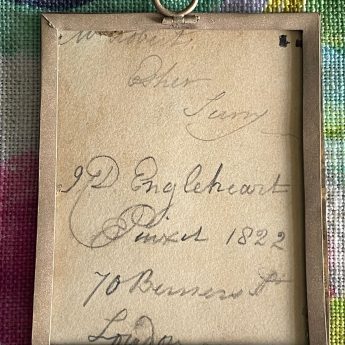 Esher
Surry
J D Engleheart
Pinxit 1822
70 Berners St
London